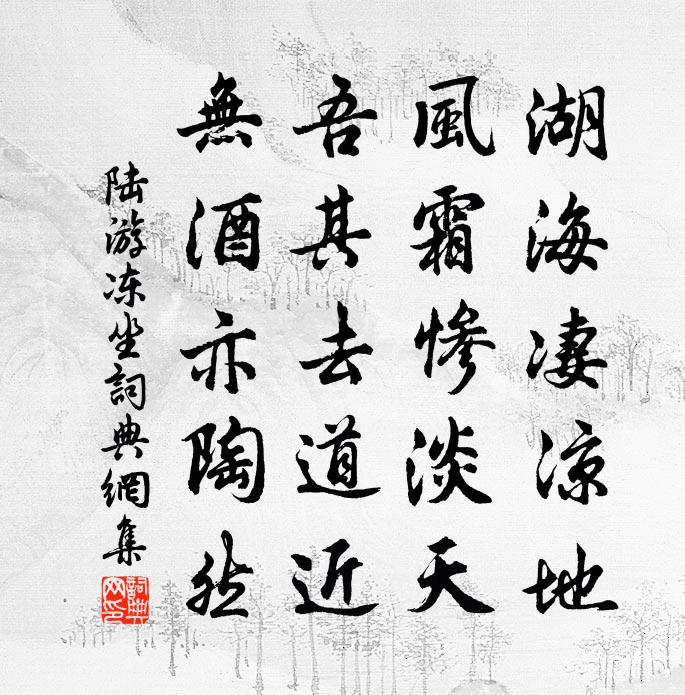 湖海凄凉地
風霜慘淡天
吾其去道近
無酒亦陶然
陆游冻坐詞典網集
詞典